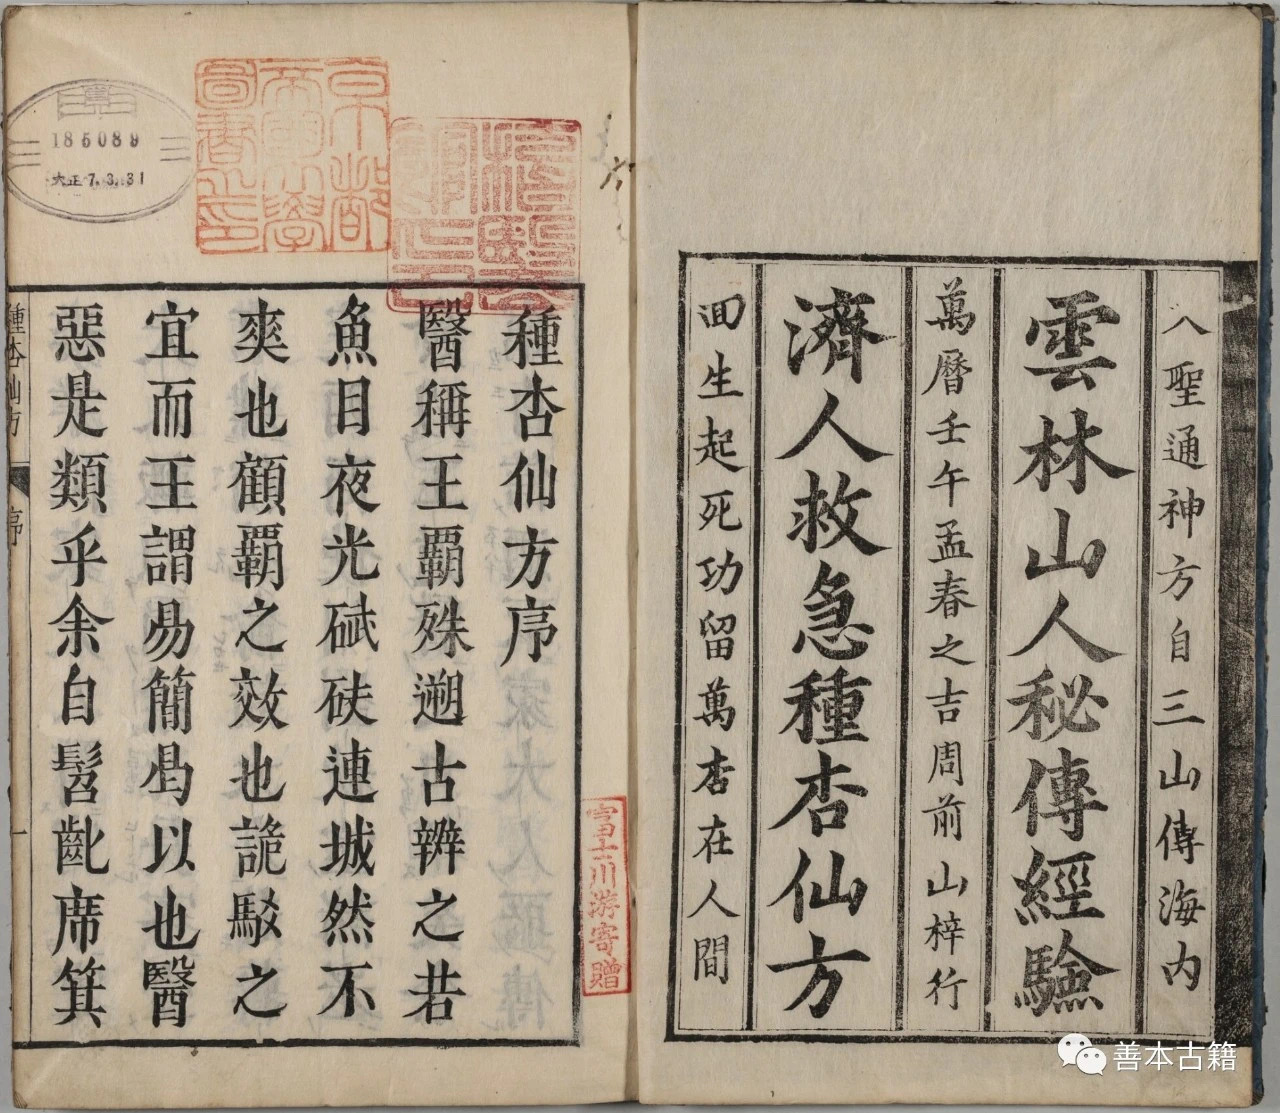 入聖通神方自三山傳海内
雲林山人秘傳經驗
萬曆壬午孟春之吉周前山梓行
濟人救急種杏仙方
回生起死功留萬杏在人間
種杏仙方序
醫稱王覇殊遡古辨之若
魚目夜光碔砆連城然不
爽也顧覇之效也詭駁之
宜而王謂昜簡曷以也醫
惡是類乎余自髫齔席箕
種杏仙方
序
一
京都
帝國大學
圖書之印
富士川游寄贈
185089
大正7.3.31
善本古籍